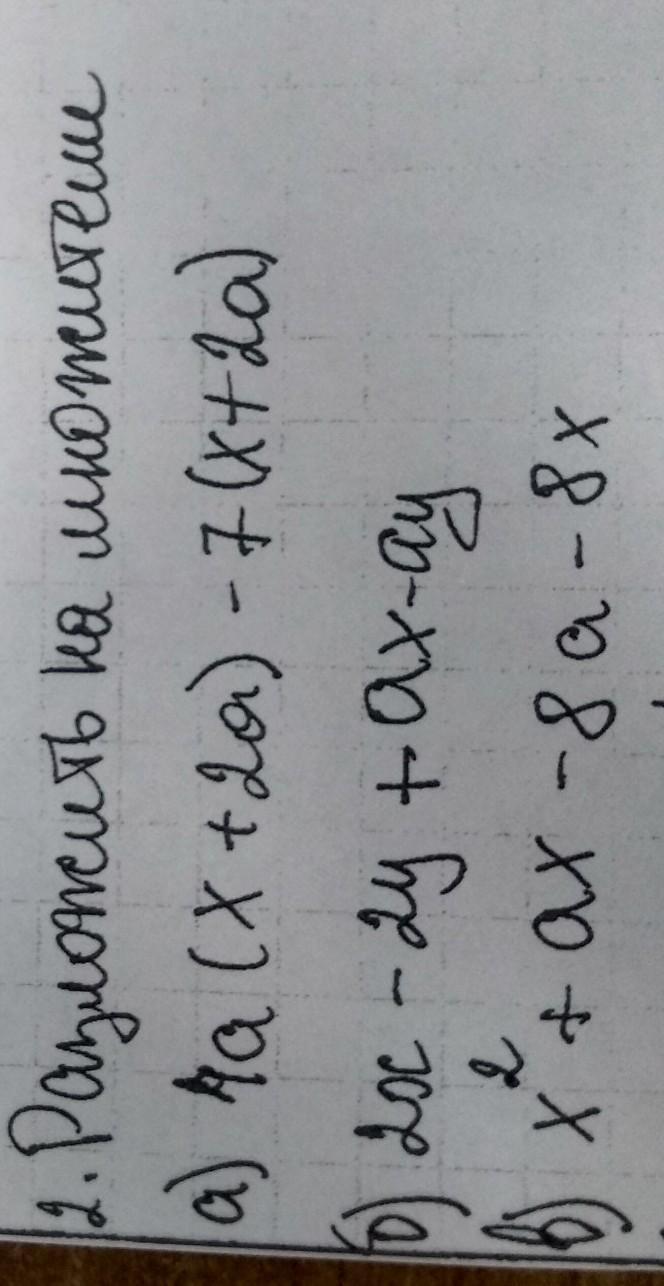 2. Разложить на множители
а) 4a (x + 2a) - 7 (x + 2a)
б) 2x - 2y + ax - ay
в) x² + ax - 8a - 8x